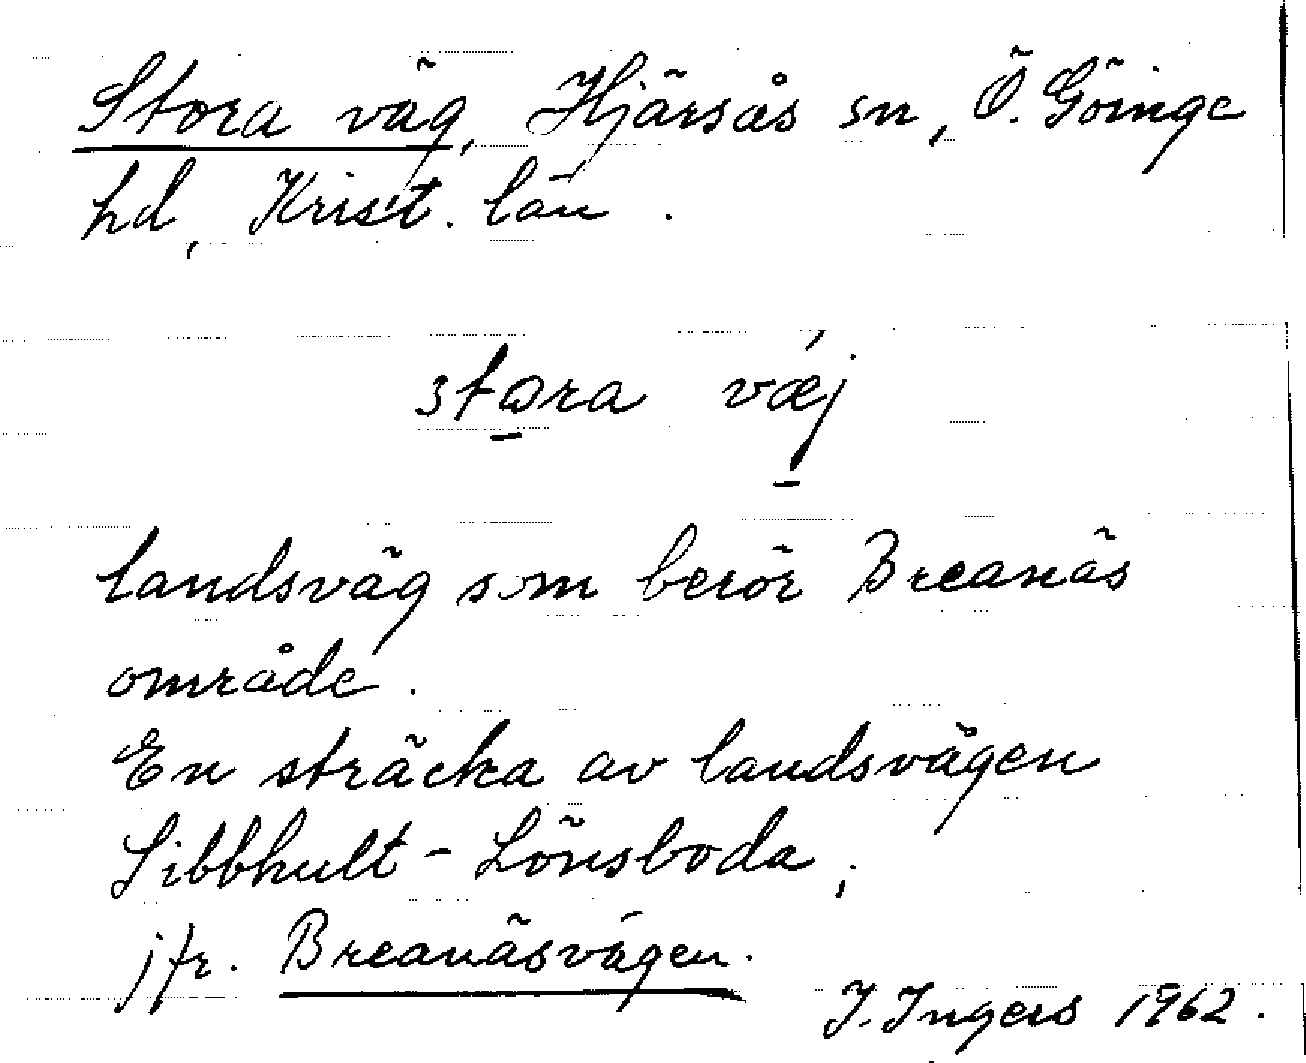 Stora väg, Hjärsås sn, Ö. Göinge
hd, Krist. län.
stora væj
landsväg som berör Breanäs
område.
En sträcka av landsvägen
Sibbhult - Lönsboda;
jfr. Breanäsvägen.
I. Ingers 1962.